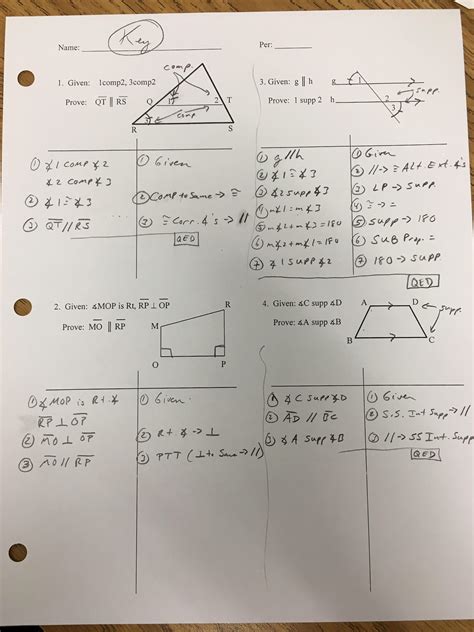 Name: Key
Per:
1. Given: 1comp2, 3comp2
Prove: QT ∥ RS
comp.
Q 1 2 T
comp
3
R S
① ∡1 comp ∡2
∡2 comp ∡3
① Given
② ∡1 ≅ ∡3
② Comp to Same → ≅
③ QT // RS
③ ≅ Corr. ∡'s → //
QED
3. Given: g ∥ h
Prove: 1 supp 2
g 1
h 2
3
Supp.
① g // h
① Given
② ∡1 ≅ ∡3
② // → ≅ Alt Ext. ∡'s
③ ∡2 supp ∡3
③ LP → Supp.
④ m∡1 = m∡3
④ ≅ → =
⑤ m∡2 + m∡3 = 180
⑤ Supp → 180
⑥ m∡2 + m∡1 = 180
⑥ SUB Prop. =
⑦ ∡1 supp ∡2
⑦ 180 → Supp
QED
2. Given: ∡MOP is Rt, RP ⊥ OP
Prove: MO ∥ RP
R
M
O P
① ∡MOP is Rt. ∡
RP ⊥ OP
① Given.
② MO ⊥ OP
② Rt. ∡ → ⊥
③ MO // RP
③ PTT (⊥ to Same → //)
4. Given: ∡C supp ∡D
Prove: ∡A supp ∡B
A D
Supp.
B C
① ∡C supp ∡D
① Given
② AD // BC
② S.S. Int Supp → //
③ ∡A Supp ∡B
③ // → SS Int. Supp
QED